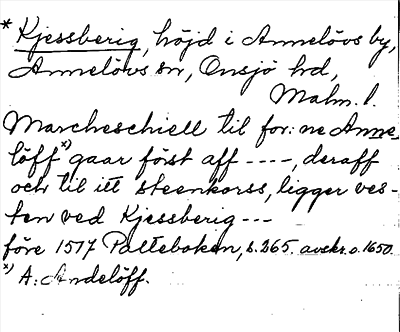 * Kjessberig, höjd i Annelövs by,
Annelövs sn, Onsjö hd,
Malm. l.
Marcheschiell til for: ne Anne-
löff *) gaar först aff ----, deraff
och til itt steenkorss, ligger ves-
ten ved Kjessberig ---
före 1517 Palteboken, s. 265. avskr. o. 1650.
*) A: Andelöff.